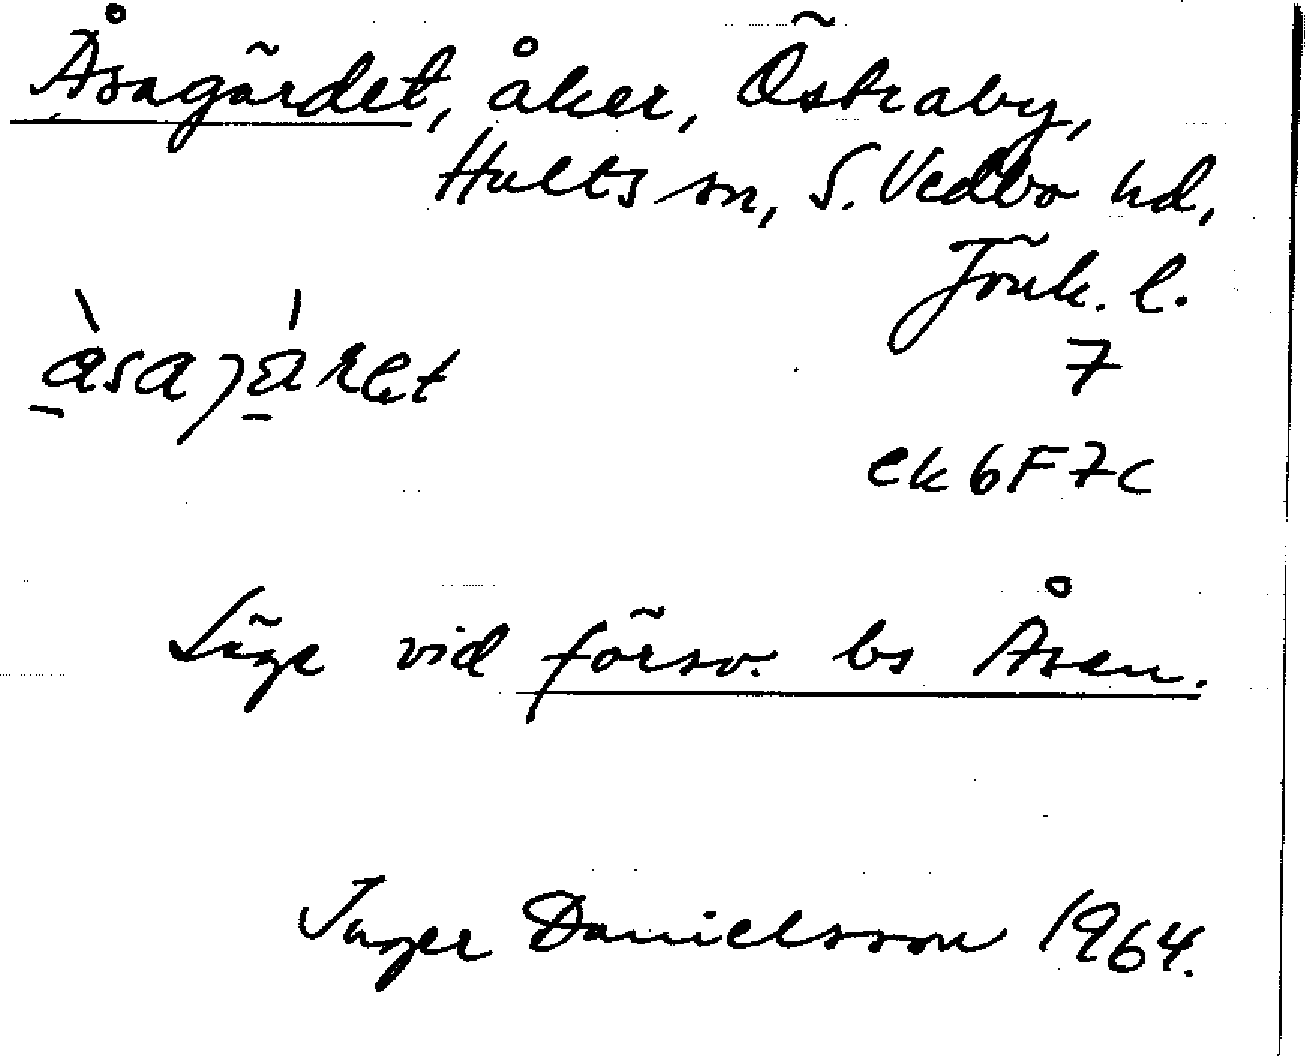 Åsagärdet, åker, Östraby,
Hults sn, S. Vedbo hd,
Jönk. l.
àsaȷáret
7
ek 6F7c
Läge vid försv. bs Åsen.
Inger Danielsson 1964.